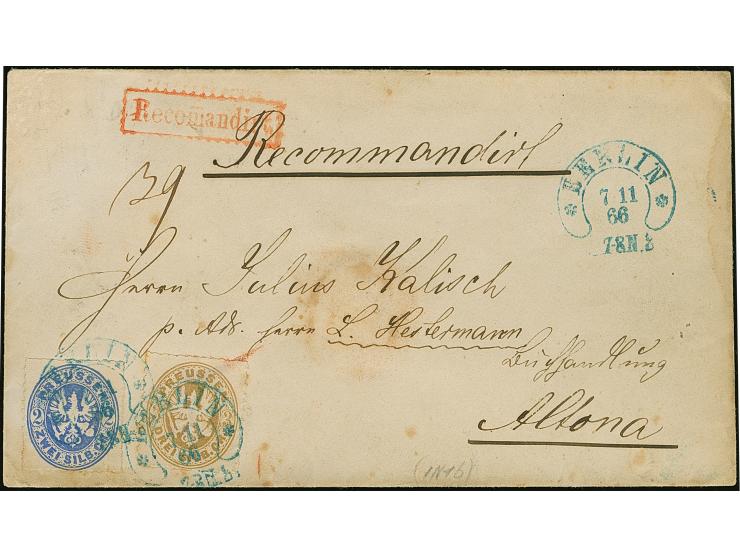 Recomandirt
Recommandirt
BERLIN
7 11
66
7-8N.
Herrn Julius Kalisch
p. Adr. Herrn L. Hestermann
Buchhandlung
Altona
PREUSSEN
2
ZWEI SILB. GR.
PREUSSEN
DREI SILB. GR.
BERLIN
(1N16)